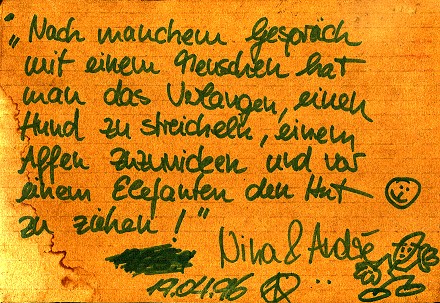 „Nach manchem Gespräch
mit einem Menschen hat
man das Verlangen, einen
Hund zu streicheln, einem
Affen zuzunicken und vor
einem Elefanten den Hut
zu ziehen!"
Nina & André
19.04.96